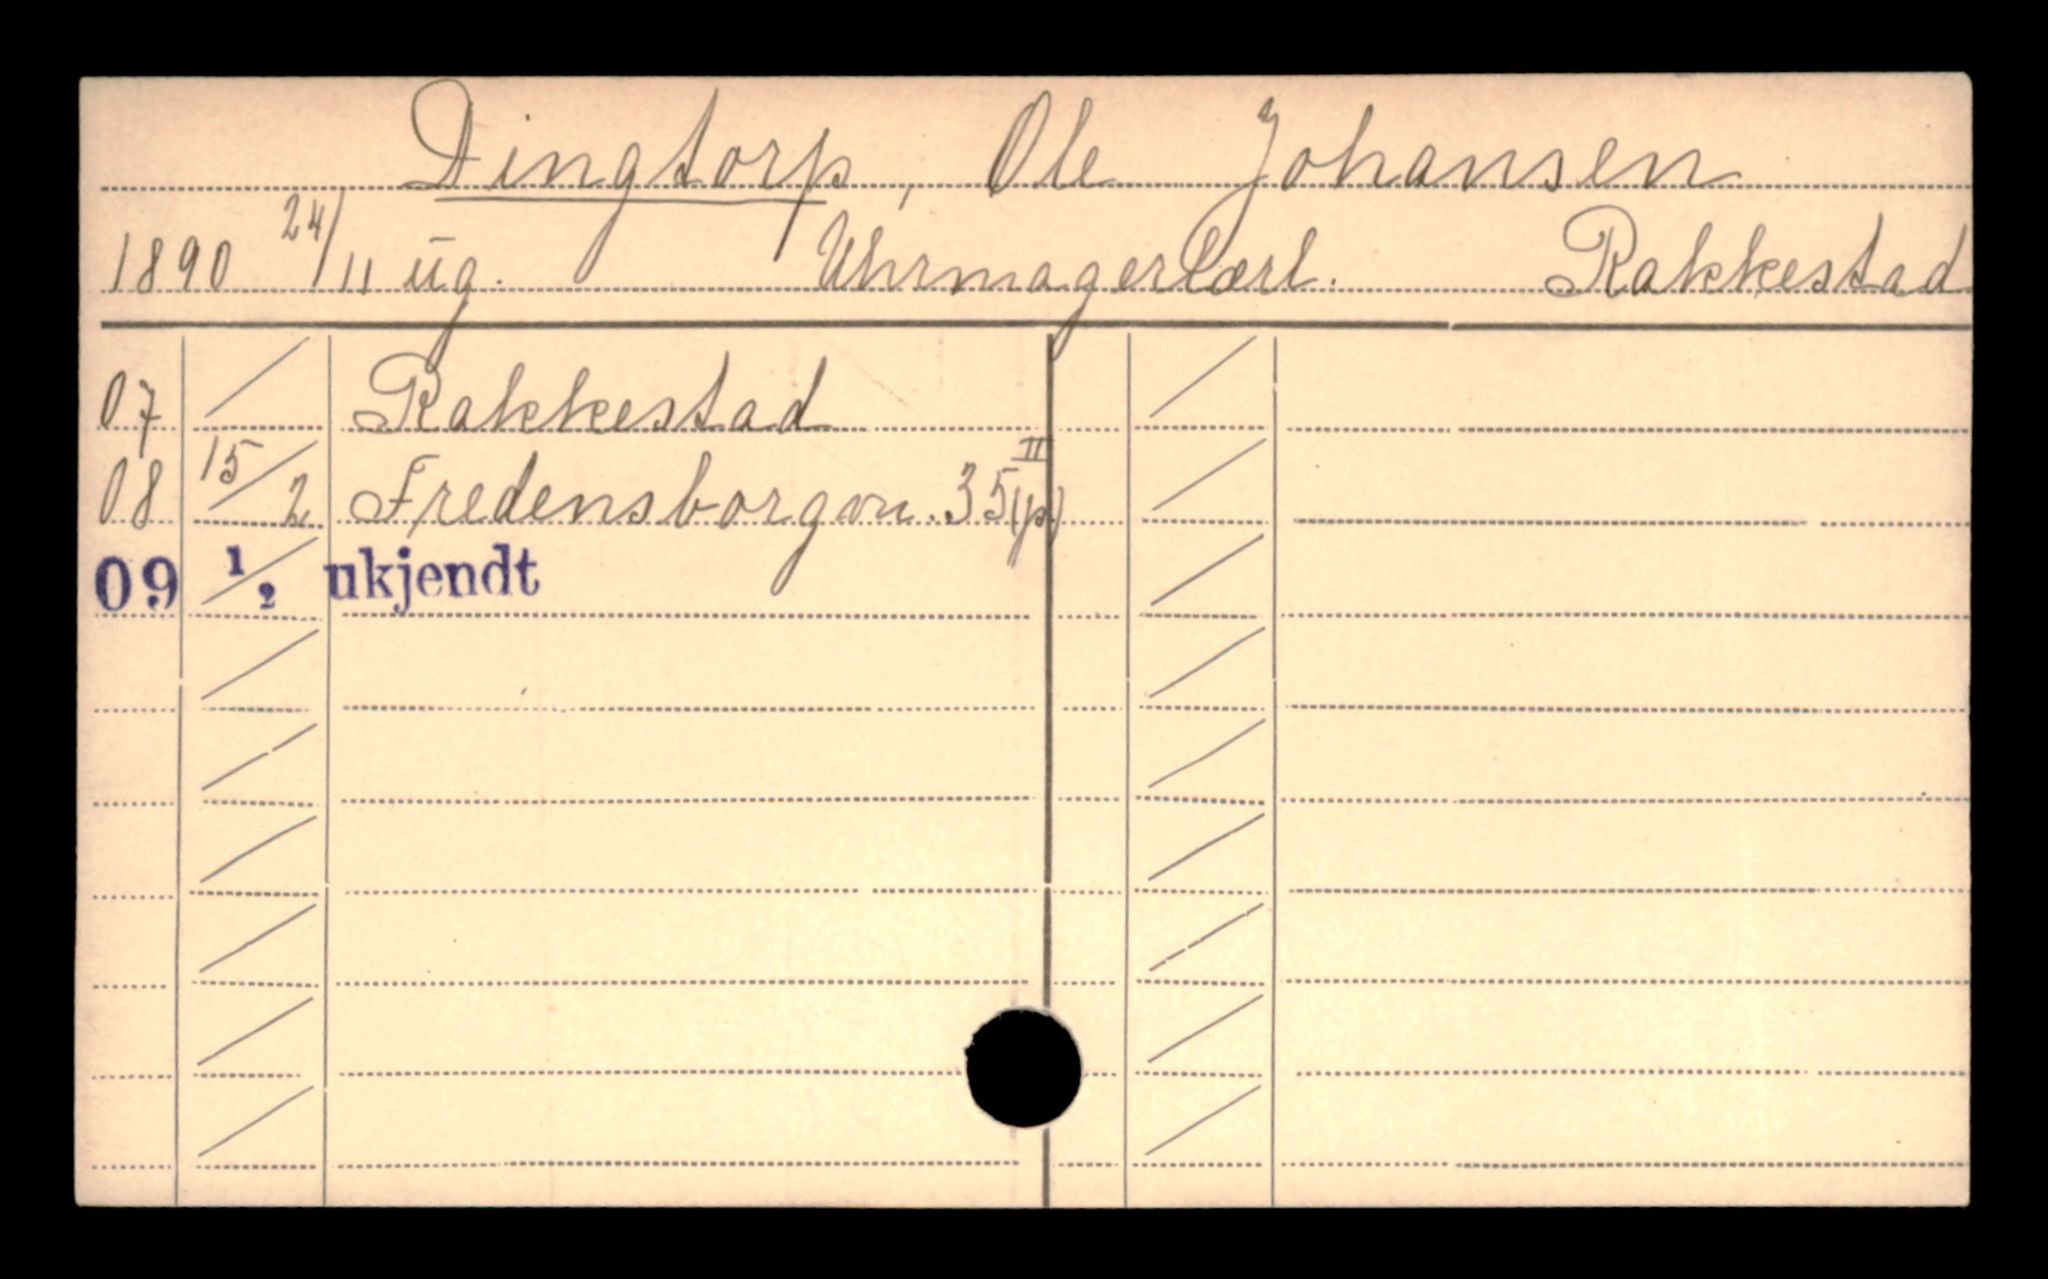 Dingtorp, Ole Johansen
1890 24/11 ug. Uhrmagerlærl. Rakkestad
07 / Rakkestad
08 15/2 Fredensborgvn. 35 II (p.)
09 1/2 ukjendt